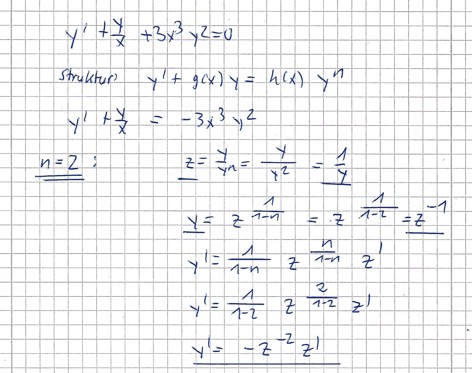 y' + y/x + 3x³y² = 0
Struktur: y' + g(x) y = h(x) yⁿ
y' + y/x = -3x³ y²
n = 2 : z = y/yⁿ = y/y² = 1/y
y = z^(1/(1-n)) = z^(1/(1-2)) = z⁻¹
y' = 1/(1-n) z^(n/(1-n)) z'
y' = 1/(1-2) z^(2/(1-2)) z'
y' = -z⁻² z'